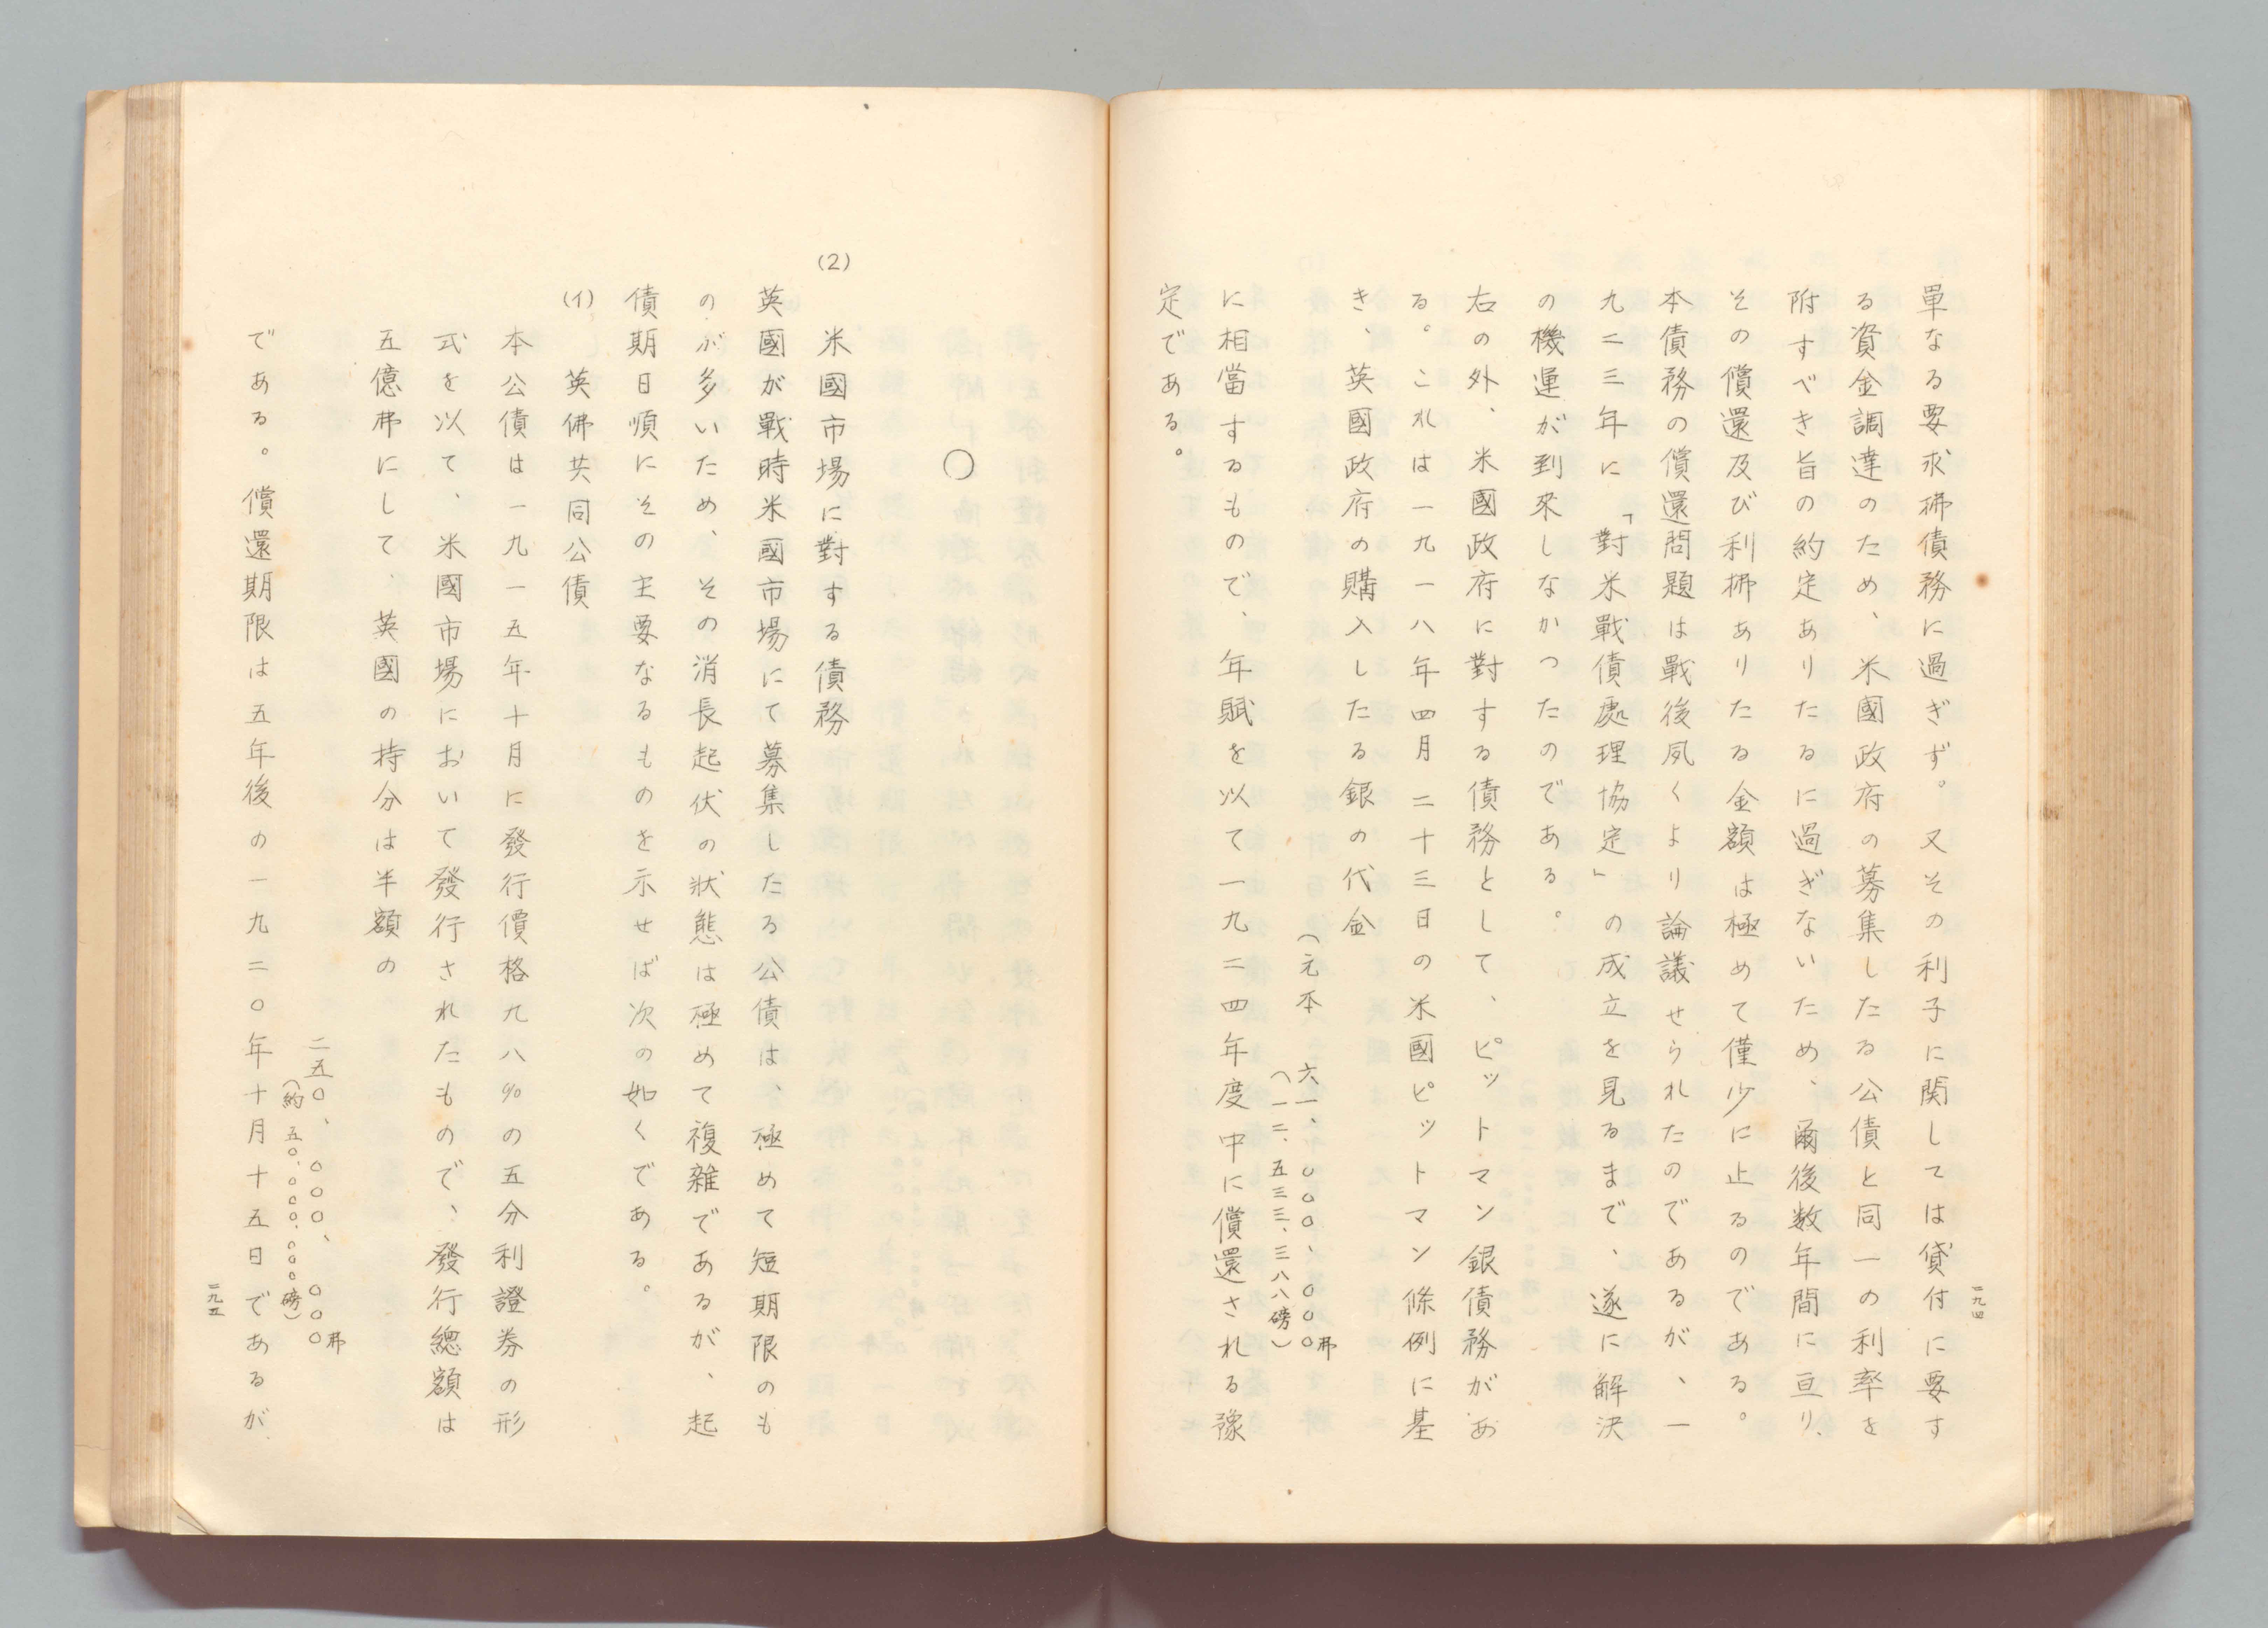 單なる要求拂債務に過ぎず。又その利子に関しては貸付に要す
る資金調達のため、米國政府の募集したる公債と同一の利率を
附すべき旨の約定ありたるに過ぎないため、爾後数年間に亘り、
その償還及び利拂ありたる金額は極めて僅少に止るのである。
本債務の償還問題は戰後夙くより論議せられたのであるが、一
九二三年に「對米戰債處理協定」の成立を見るまで、遂に解決
の機運が到來しなかつたのである。
右の外、米國政府に對する債務として、ピットマン銀債務があ
る。これは一九一八年四月二十三日の米國ピットマン條例に基
き、英國政府の購入したる銀の代金
(元本 六一、〇〇〇、〇〇〇弗
(一二、五三三、三八八磅)
に相當するもので、年賦を以て一九二四年度中に償還される豫
定である。
一九四
〇
(2) 米國市場に對する債務
英國が戰時米國市場にて募集したる公債は、極めて短期限のも
のが多いため、その消長起伏の狀態は極めて複雜であるが、起
債期日順にその主要なるものを示せば次の如くである。
(イ) 英佛共同公債
本公債は一九一五年十月に發行價格九八%の五分利證券の形
式を以て、米國市場において發行されたもので、發行總額は
五億弗にして、英國の持分は半額の
二五〇、〇〇〇、〇〇〇弗
(約 五〇、〇〇〇、〇〇〇磅)
である。償還期限は五年後の一九二〇年十月十五日であるが
一九五